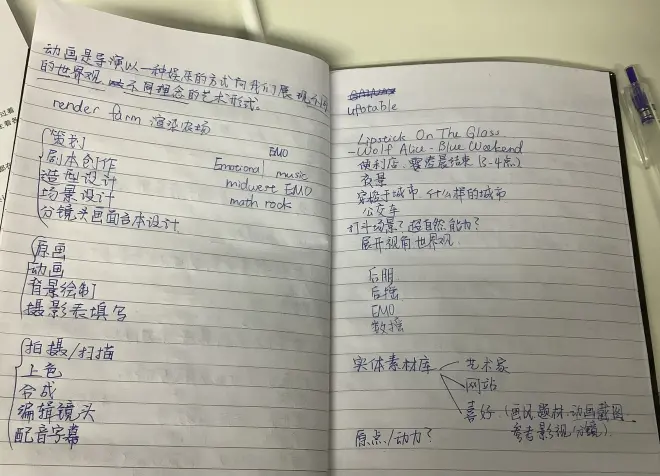 动画是导演以一种怪诞的方式向我们展现不同
的世界观、不同理念的艺术形式。
render farm 渲染农场
策划
剧本创作
造型设计
场景设计
分镜头画面台本设计
EMO
Emotional music
midwest EMO
math rock
原画
动画
背景绘制
摄影表填写
拍摄/扫描
上色
合成
编辑镜头
配音字幕
ufotable
Lipstick On The Glass
-Wolf Alice - Blue Weekend
便利店、凌晨结束 (3-4点)
夜景
穿梭于城市、什么样的城市
公交车
打斗场景?超自然能力?
展开视角世界观.
后朋
后摇
EMO
数摇
实体素材库
艺术家
网站
喜好.(画风题材.动画截图
参考影视/分镜)
原点/动力?